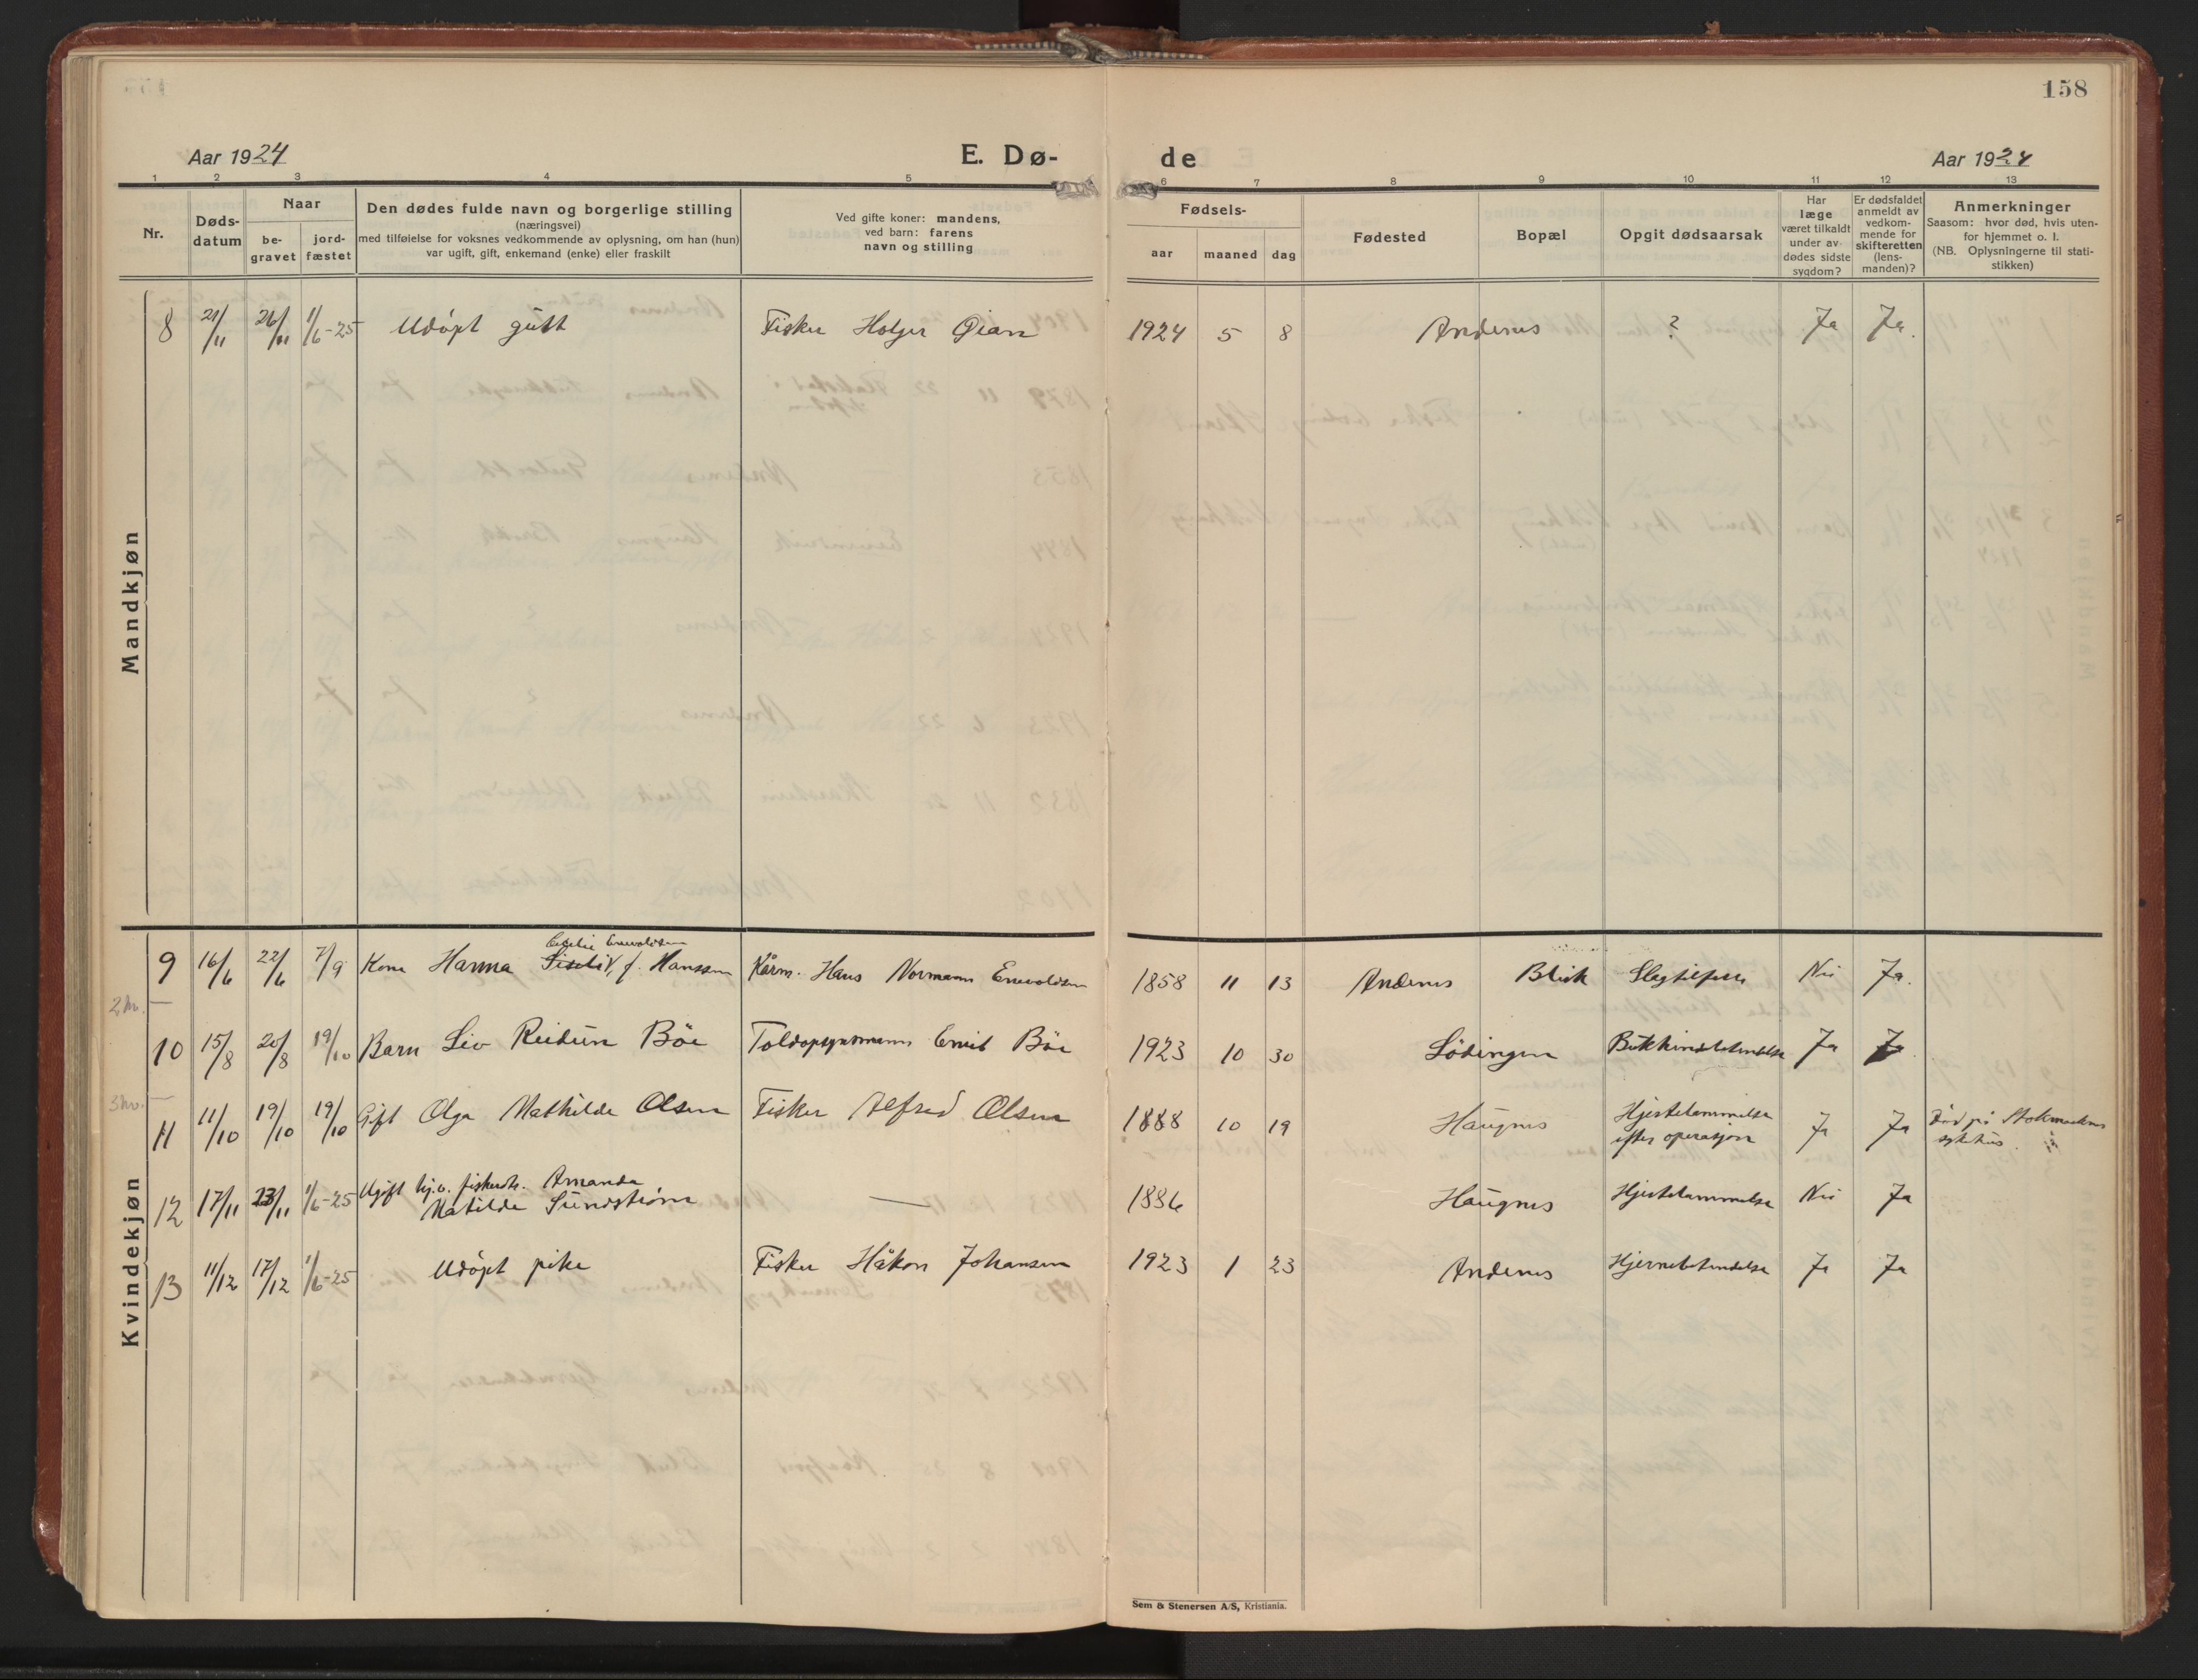 158
Aar 1924
E. Dø-
de
Aar 1924
1 2 3 4 5 6 7 8 9 10 11 12 13
Nr.
Døds-
datum
Naar
be-
gravet
jord-
fæstet
Den dødes fulde navn og borgerlige stilling
(næringsvei)
med tilføielse for voksnes vedkommende av oplysning, om han (hun)
var ugift, gift, enkemand (enke) eller fraskilt
Ved gifte koner: mandens,
ved barn: farens
navn og stilling
Fødsels-
aar maaned dag
Fødested
Bopæl
Opgit dødsaarsak
Har
læge
været tilkaldt
under av-
dødes sidste
sygdom?
Er dødsfaldet
anmeldt av
vedkom-
mende for
skifteretten
(lens-
manden)?
Anmerkninger
Saasom: hvor død, hvis uten-
for hjemmet o. l.
(NB. Oplysningerne til stati-
stikken)
Mandkjøn
8 21/11 26/11 1/6-25 Udöpt gutt Fisker Holger 1924 5 8 Andenes ? Ja Ja.
Kvindekjøn
Enevoldsen
9 16/6 22/6 7/9 Kone Hanna f. Hanssen Kårm. Hans Normann Enevoldsen 1858 11 13 Andenes Bleik Slagtilfelle Nei Ja.
10 15/8 20/8 19/10 Barn Liv Reidun Böe Toldopsynsmann Emil Böe 1923 10 30 Lödingen Bukhindebetendelse Ja Ja
11 11/10 19/10 19/10 Gift Olga Mathilde Olsen Fisker Alfred Olsen 1888 10 19 Haugnes Hjertelammelse
efter operasjon Ja Ja Död på Stokmarknes
sykehus
12 17/11 23/11 1/6-25 Ugift Amanda
Matilde Sundström — 1886 Haugnes Hjertelammelse Nei Ja
13 11/12 17/12 1/6-25 Udöpt pike Fisker Håkon Johansen 1923 1 23 Andenes Hjernebetendelse Ja Ja
Sem & Stenersen A/S, Kristiania.